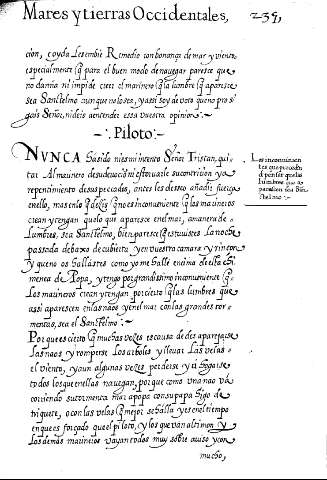 Mares y tierras Occidentales, 239,
cion, coyda les embie Remedio con bonança de mar y viento
especialmente q̃ para el buen modo de nauegar paresce que
no daña ni impide creer el marinero q̃ la lumbre q̃ aparesce
sea Sanctelmo aunque no lo sea, y assi soy de voto que no pro si
gais Señor, ni deis a entender essa vuestra opinion
Piloto
NVNCA Ha sido ni es mi intento Señor Tristan, qui
tar Al marinero su deuocion ni estoruarle su contricion ya
repentimiento de sus peccados, antes les desseo añadir fuerça
en ello, mas en lo q̃ dezis q̃ no es inconueniente q̃ los marineros
crean y tengan que lo que aparesce en el mar, a manera de
lumbres, sea Sanctelmo, bien paresce q̃ estuuistes La noche
passada debaxo de cubierta y en vuestra camara y rincon
y que no os hallastes como yo me halle encima de
menea de Popa, y tengo por grandissimo inconueniente q̃
Los marineros crean y tengan por cierto q̃ las lumbres que
assi aparescen en las naos y en el mar con las grandes tor-
mentas, sea el Sanctelmo
Porque es cierto q̃ muchas vezes es causa de desaparejarse
Las naos y romperse Los arboles y lleuar Las velas
el viento, y aun algunas vezes perderse y ahogarse
todos los que en ellas nauegan, porque como vna nao va
corriendo su tormenta mar a popa con su papa higo de
triquete, o con las velas q̃ mejor se halla y es en el tiempo
en que es forçado que el piloto, y los que van al timon y
Los demas marineros vayan todos muy sobre auiso y con
mucho,
Los inconuenien
tes que proceden
de pensar que las
lumbres que a-
parescen sea San
ctelmo